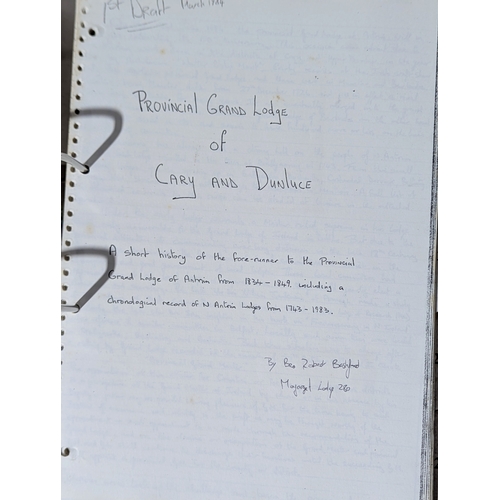 1st Draft March 1984
PROVINCIAL GRAND Lodge
of
CARY AND DUNLUCE
A short history of the fore-runner to the Provincial
Grand Lodge of Antrim from 1834-1849, including a
chronological record of N Antrim Lodges from 1743-1983.
By Bro Robert Bashford
Margaret Lodge 280